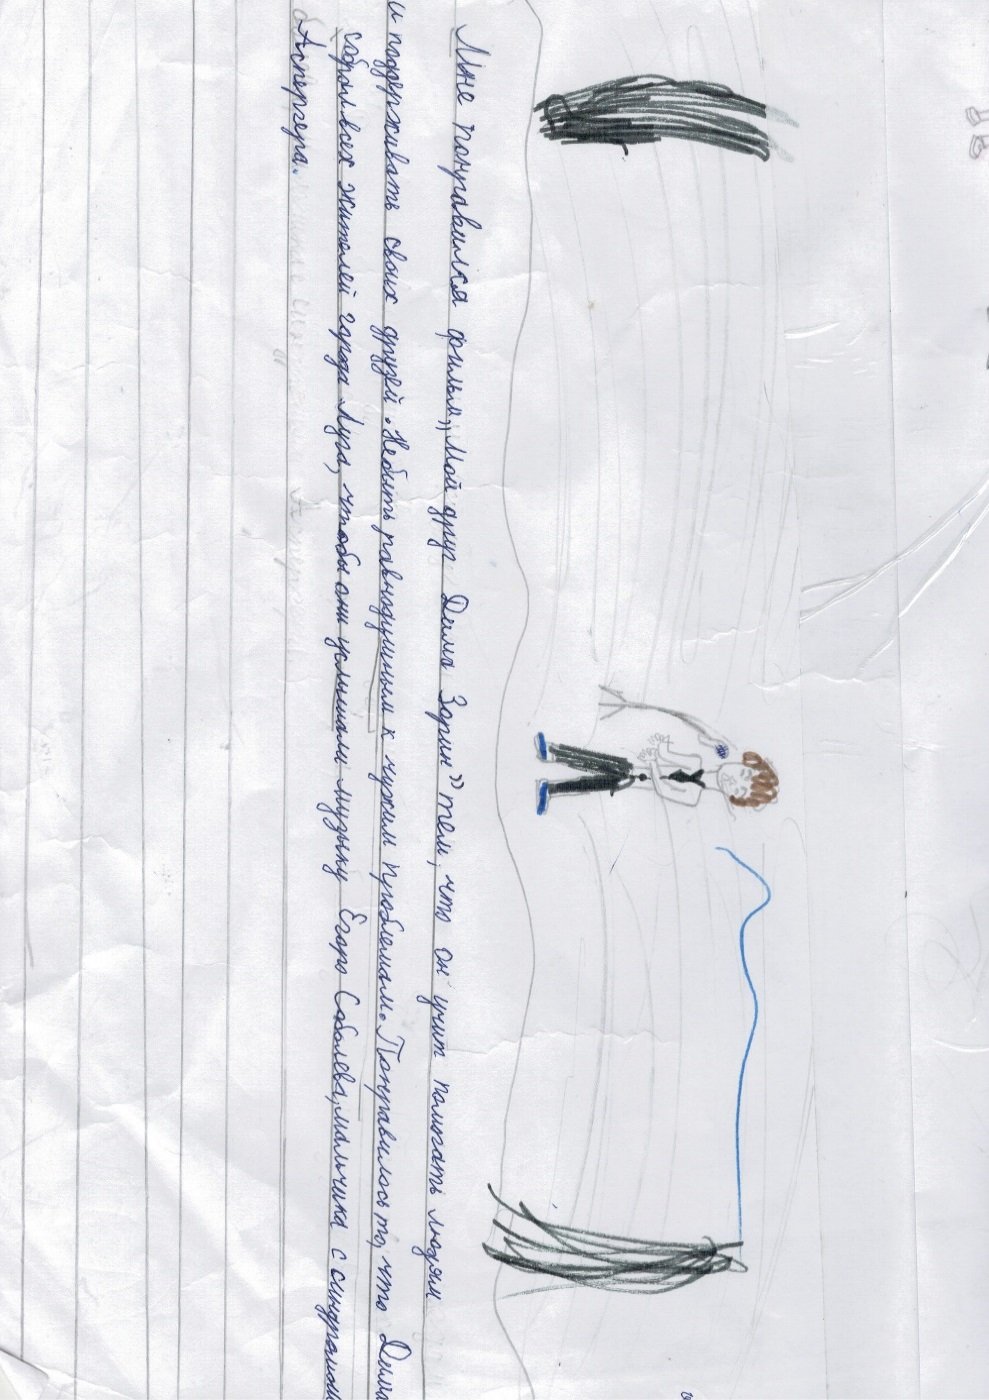 Мне понравился фильм „Мой друг Дима Зорин” тем, что он учит помогать людям
и поддерживать своих друзей. Небыть равнодушным к чужим проблемам. Понравилось то, что Дима
собрал всех жителей города Луга, чтобы они услышали музыку Егора Соболева, мальчика с синдромом
Аспергера.